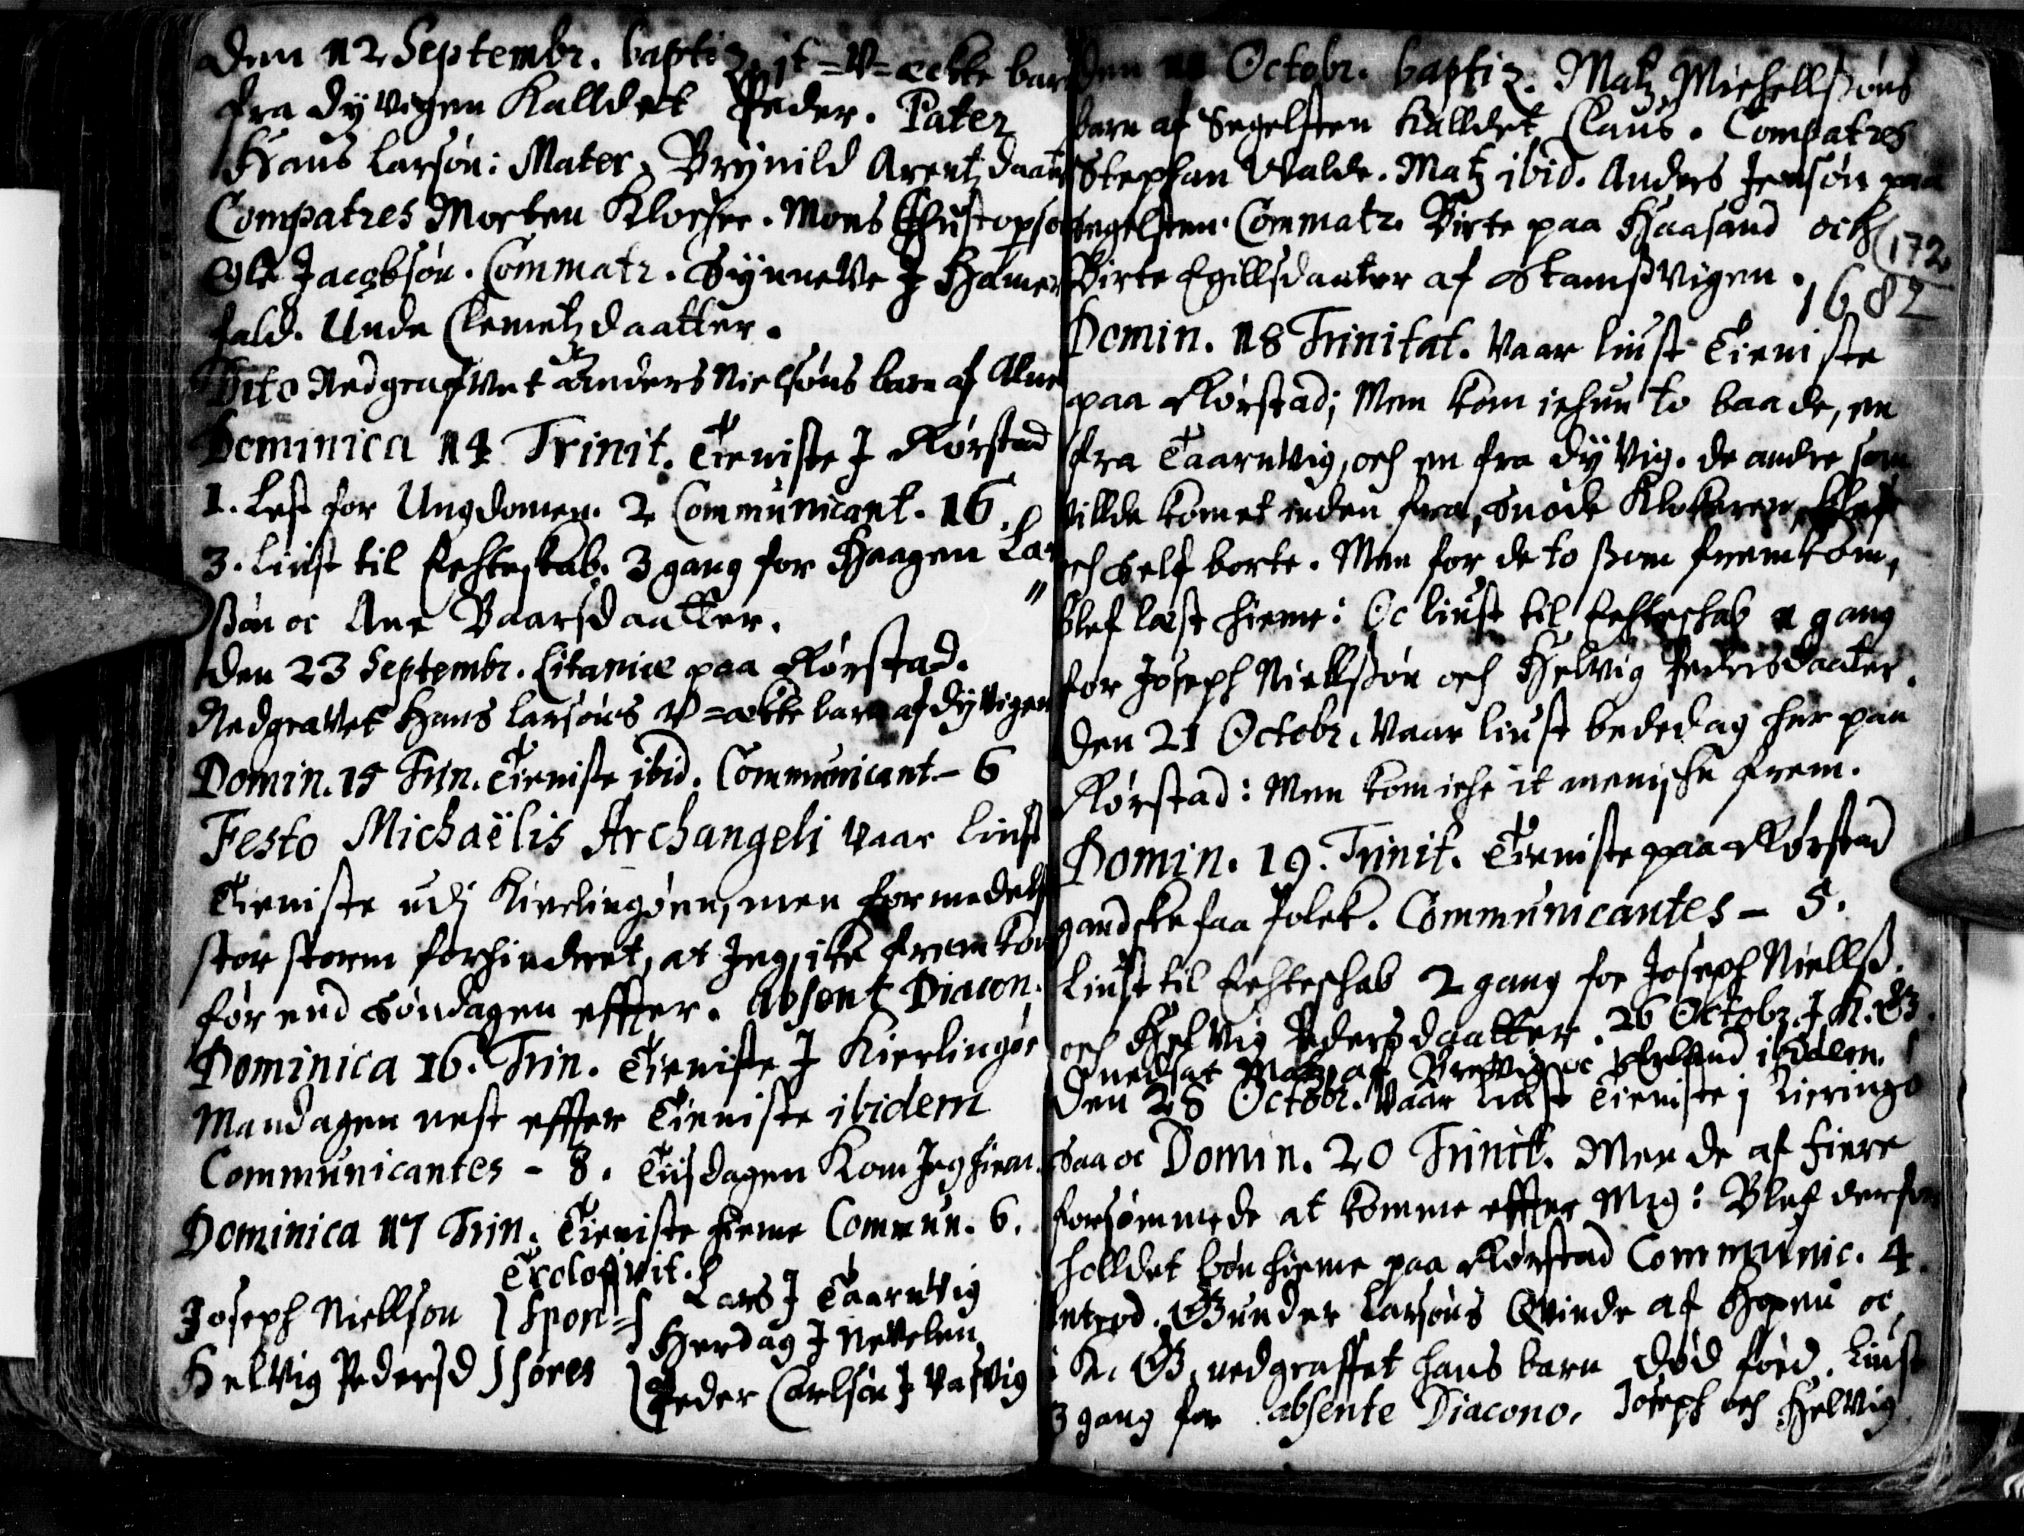 Den 12 Septembr. baptiz. it =V= ækte barn
fra Dyvigen Kalldet Peder. Pater
Hans Larsøn: Mater, Brynild Arentzdaatt
Compatres Morten Klocker. Mons Christopsøn
Ole Jacobsøn. Commatr. Synneve J Hamer
fald. Unde Clemetzdaatter.
Dito Nedgrafvet Anders Nielsøns barn af Alne
Dominica 14 Trinit. Tieniste J Rørstad
1. Lest for Ungdomen. 2 Communicant. 16.
3. Liust til Echteskab. 3 gang for Haagen Lar
ßøn oc Ane Baarsdaatter.
Den 23 Septembr. Litaniæ paa Rørstad.
Nedgravet Hans Larsøns V=ækte barn af Dyvigen
Domin. 15 Trin. Tieniste ibid. Communicant - 6
Festo Michaëlis Archangeli vaar liust
Tieniste udj Kierlingøen, men formedelst
stor storm forhindret, at Jeg ike frem kom
før end Søndagen effter. Absent Diacon.
Dominica 16. Trin. Tieniste J Kierlingøe
Mandagen nest effter Tieniste ibidem
Communicantes - 8. Tiisdagen Kom Jeg hiem.
Dominica 17 Trin. Tieniste hieme Commun. 6.
Trolofvit.
Joseph Niellson } Spon= { Lars J Taarnvig
Herdag J Nevelen
Helvig Pedersd } sores { Peder Carlsøn J Vasvig
Den 11 Octobr. baptiz. Matz Michellßøns
barn af Segelsten kalldet Claus. Compatres
Stephan Valde. Matz ibid. Anders Jensøn paa
Segelsten. Commatr. Birte paa Haasand och
172
Birte Egillsdaater af Stamßvigen.
1682
Domin. 18 Trinitat. Vaar liust Tieniste
paa Rørstad; Men kom ichun to baade, en
fra Taarnvig, och en fra Dyvig. de andre som
villde komet inden fra, snøde Klokeren
och self borte. Men for de to ßom fremkom,
blef læst hieme: Oc liust til Echteschab 1 gang
for Joseph Niellßøn och Helvig Pedersdaater.
Den 21 Octobr. Vaar liust bededag her paa
Rørstad: Men kom iche it menische frem.
Domin. 19. Trinit. Tieniste paa Rørstad
gandske faa folck. Communicantes - 5.
Liust til Echteschab 2 gang for Joseph Niellß.
och Helvig Pedersdaatter. 26 Octobr. J K. Ø.
nedsat Matz af Brevig oc Erland ibidem.
Den 28 Octobr. Vaar liust Tieniste j Kieringø
Saa oc Domin. 20 Trinit. Men de af Fiere
forsømmede at komme effter Mig: Blef derfor
holldet bøn hieme paa Rørstad Communic. 4.
Introd. Gunder Larsøns Qvinde af Hopen oc
i K. Ø. nedgraffet hans barn død fød. Liust
3 gang for absente Diacono. Joseph och Helvig